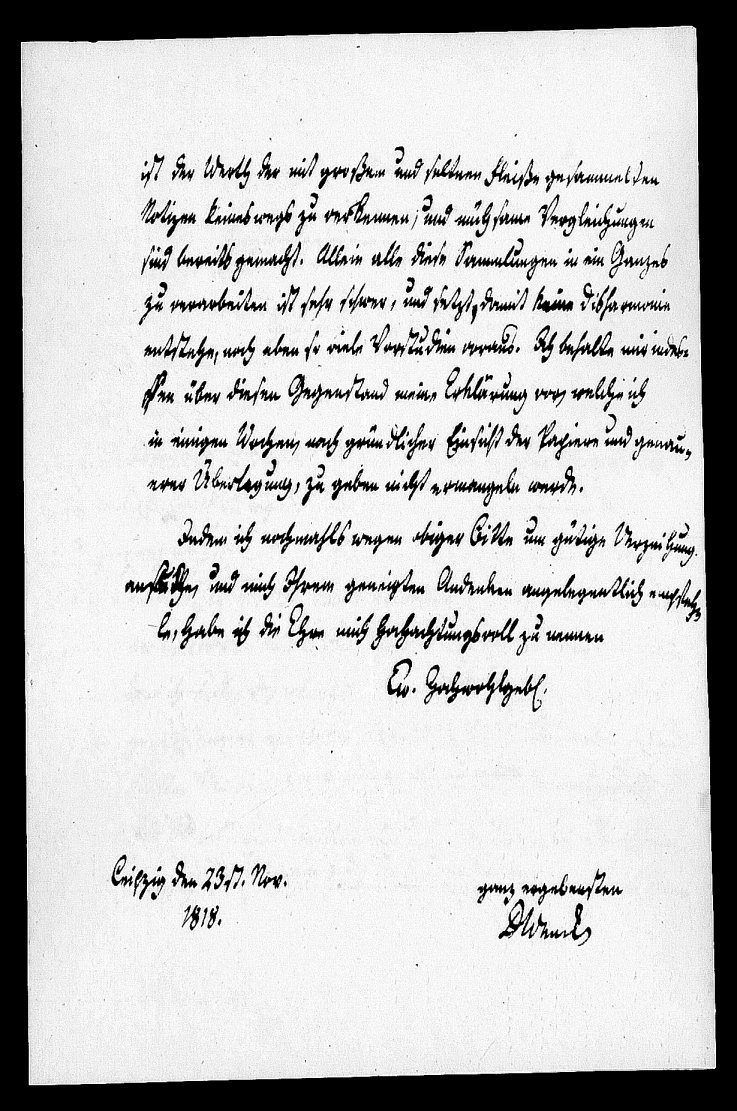 ist der Werth der mit großem und seltnen Fleiße gesammelten
Notizen keineswegs zu verkennen, und mühsame Vergleichungen
sind bereits gemacht. Allein alle diese Sammlungen in ein Ganzes
zu verarbeiten ist sehr schwer, und setzt, damit keine Disharmonie
entstehe, noch eben so viele Vorstudien voraus. Ich behalte mir indes-
sen über diesen Gegenstand meine Erklärung vor, welche ich
in einigen Wochen, nach gründlicher Einsicht der Papiere und genau-
erer Überlegung, zu geben nicht ermangeln werde.
Indem ich nochmahls wegen obiger Bitte um gütige Verzeihung
ansuche, und mich Ihrem geneigten Andenken angelegentlich empfeh-
le, habe ich die Ehre mich hochachtungsvoll zu nennen
Ew. Hochwohlgeb.
Leipzig den 23st. Nov.
1818.
ganz ergebensten